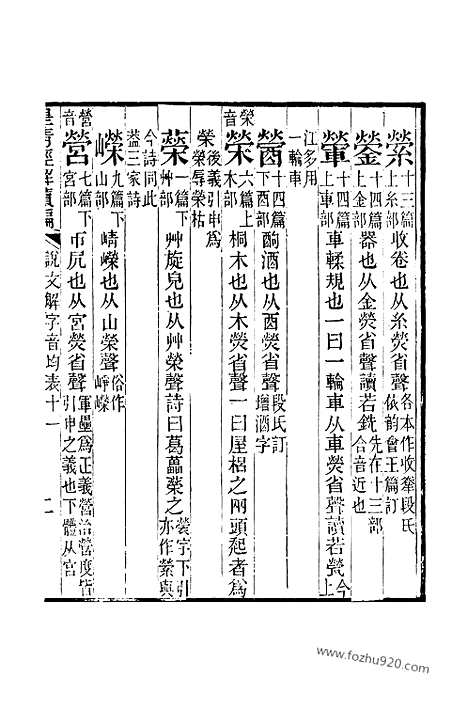 縈 十三篇上糸部 收卷也从糸熒省聲 各本作收韏段氏依韵會王篇訂
鎣 十四篇上金部 器也从金熒省聲讀若銑 先在十三部合音近也
䡘 十四篇上車部 車輮規也一曰一輪車从車熒省聲讀若煢 今上
江多用一輪車
醟 十四篇下酉部 酌酒也从酉熒省聲 段氏訂增酒字
榮 音榮 六篇上木部 桐木也从木熒省聲一曰屋梠之兩頭起者爲
榮 後義引申爲榮辱榮枯
蘃 一篇下艸部 艸旋皃也从艸榮聲詩曰葛藟蘃之 蘃字下引亦作縈與
今詩同此葢三家詩
嶸 九篇下山部 崝嶸也从山榮聲 俗作崢嶸
營 音營 七篇下宮部 帀凥也从宮熒省聲 軍壘爲正義營治營度皆引申之義也下體从宮
皇淸經解續編 說文解字音均表十一 二
www.fozhu920.com